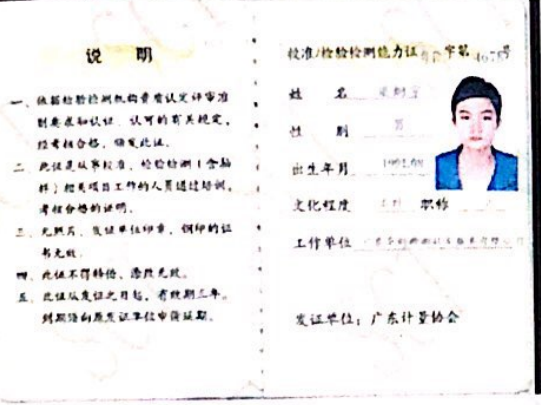 说 明
一、依据检验检测机构资质认定评审准
则要求和认证、认可的有关规定,
经考核合格,颁发此证。
二、此证是从事校准、检验检测(含抽
样)相关项目工作的人员通过培训,
考核合格的证明。
三、无照片、发证单位印章、钢印的证
书无效。
四、此证不得转借、涂改无效。
五、此证从发证之日起,有效期三年。
到期须向原发证单位申请延期。
校准/检验检测能力证 字第 号
姓 名
性 别 男
出生年月
文化程度 职称
工作单位
发证单位:广东计量协会